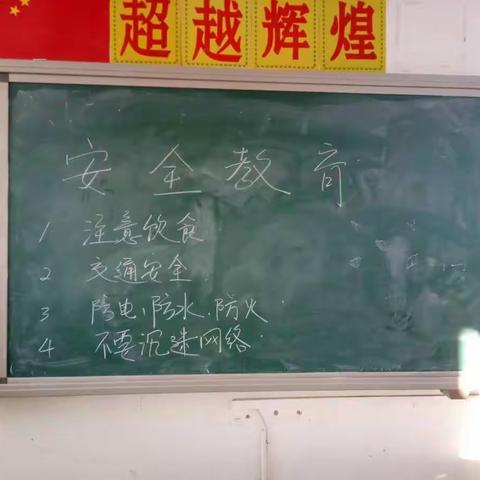 超越辉煌
安全教育
1 注意饮食
2 交通安全
3 防电、防水、防火
4 不要沉迷网络